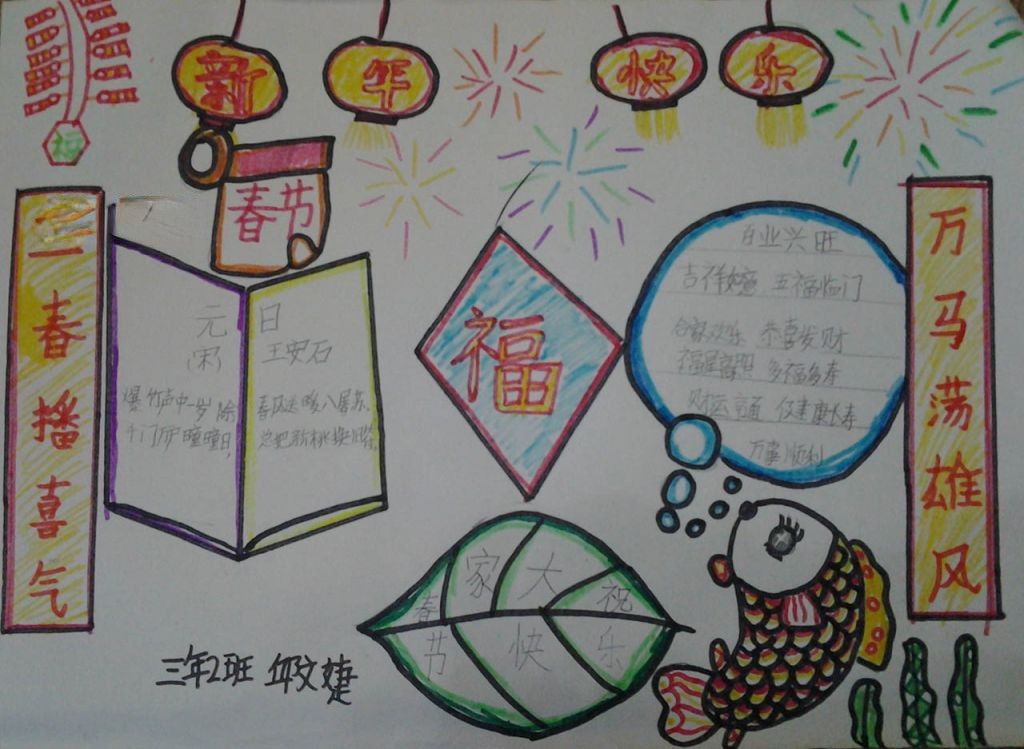 新年快乐
福
春节
三春播喜气
元日
(宋) 王安石
爆竹声中一岁除
千门万户曈曈日,
春风送暖入屠苏.
总把新桃换旧符.
福
百业兴旺
吉祥如意 五福临门
合家欢乐 恭喜发财
福星高照 多福多寿
财运亨通 健康长寿
万事顺利
万马荡雄风
祝大家春
节快乐
三年2班 邱文婕